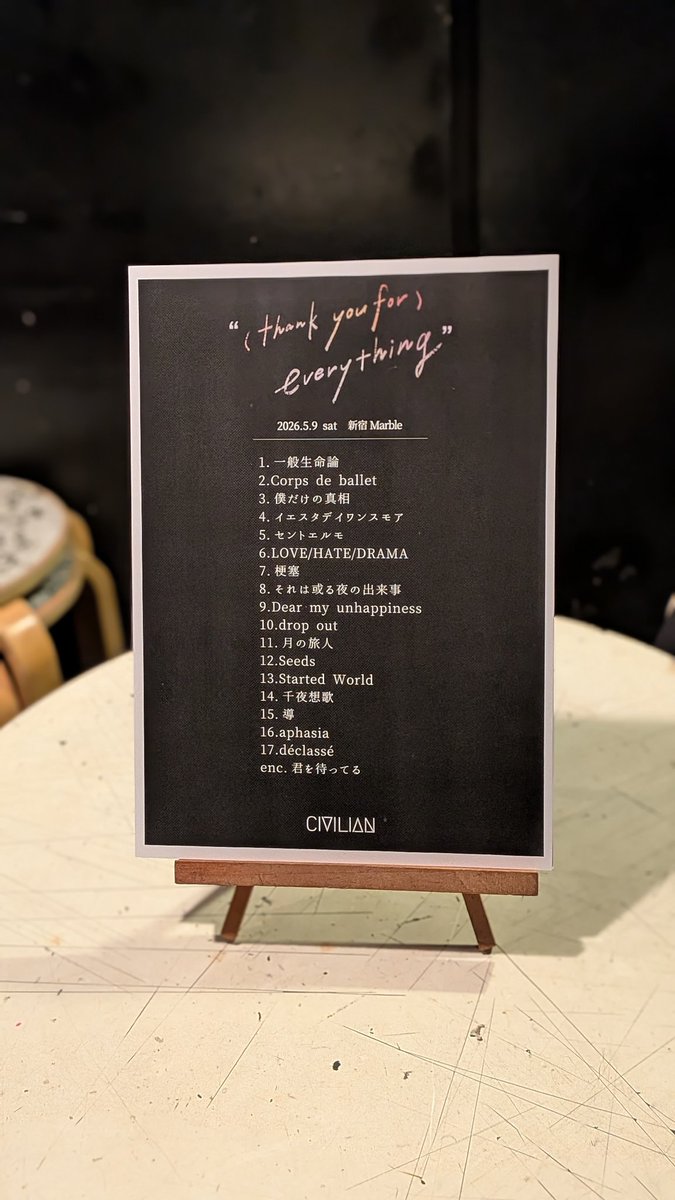 “(thank you for)
everything”
2026.5.9 sat 新宿 Marble
1. 一般生命論
2.Corps de ballet
3. 僕だけの真相
4. イエスタデイワンスモア
5. セントエルモ
6.LOVE/HATE/DRAMA
7. 梗塞
8. それは或る夜の出来事
9.Dear my unhappiness
10.drop out
11. 月の旅人
12.Seeds
13.Started World
14. 千夜想歌
15. 導
16.aphasia
17.déclassé
enc. 君を待ってる
CIVILIAN